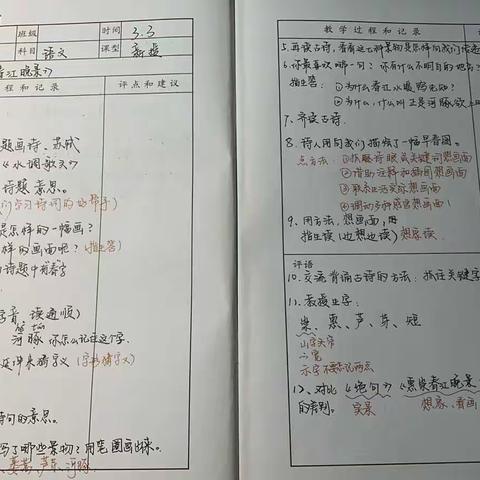 班级
时间 3.3
科目 语文
课型 新授
春江晚景》
程和记录
评点和建议
题画诗、苏轼
《水调歌头》
诗题意思。
是怎样的一幅画?
样的画面呢?(指生答)
诗题中有春字
字音、读通顺)
河豚 你怎么记住这个字.
诗句的意思。
写了哪些景物?用笔圈画出来。
蒌蒿、芦芽、河豚
教学过程和记录
5.再读古诗,看看这七种景物是怎样向我们传递
6.你最喜欢哪一句?你有什么不明白的地方?
指生答:①为什么春江水暖鸭先知?
②为什么,什么叫正是河豚欲上时
7.齐读古诗.
8.诗人用向我们描绘了一幅早春图。
点方法:①抓题诗眼或关键词想画面
②借助注释和插图想画面
③联系生活实际想画面
④调动多种感官想画面!
9.用方法,想画面,
指生读(边想边读)想象读.
评语
10.交流背诵古诗的方法:抓住关键字
11.教授生字:
崇、惠、芦、芽、短
山字头窄
12、对比《绝句》《惠崇春江晚景
的差别。 实景 想象、看画